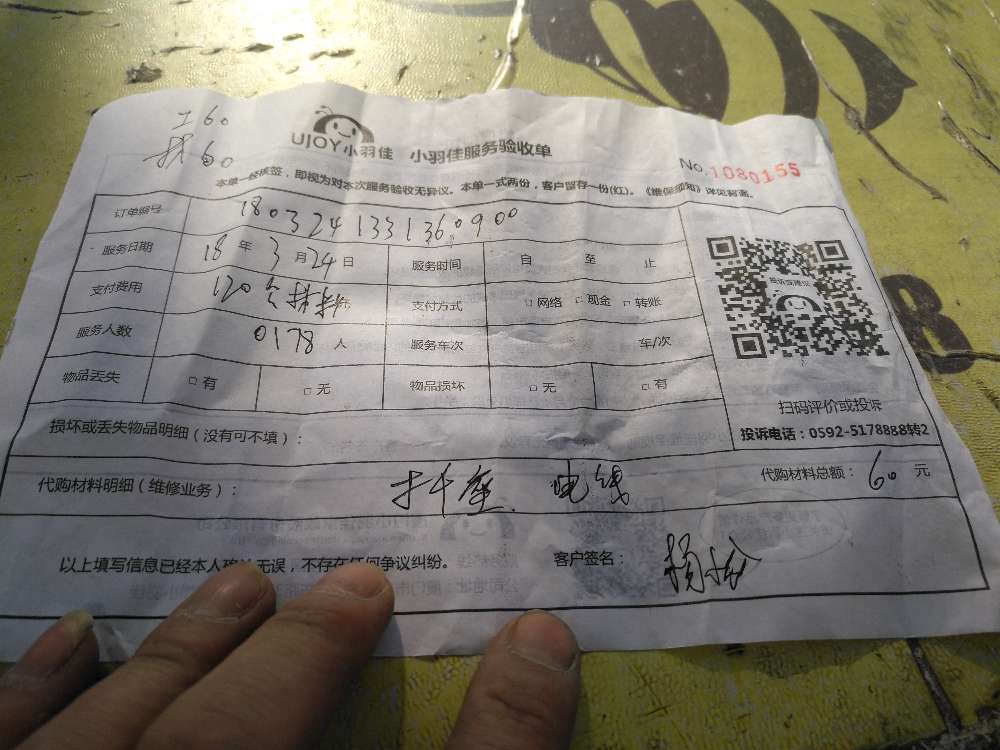 工60
UJOY小羽佳 小羽佳服务验收单
60
No.1080155
本单一经核签，即视为对本次服务验收无异议。本单一式两份，客户留存一份(红)。《维保须知》详见背面。
订单编号 1803241331360900
服务日期 18年3月24日 服务时间 自 至 止
支付费用 120含材料 支付方式 □网络 □现金 □转账
服务人数 0178人 服务车次 车/次
物品丢失 □有 □无 物品损坏 □无 □有
扫码评价或投诉
投诉电话：0592-5178888转2
损坏或丢失物品明细（没有可不填）：
代购材料明细（维修业务）： 插座 电线 代购材料总额：60元
以上填写信息已经本人确认无误，不存在任何争议纠纷。 客户签名：